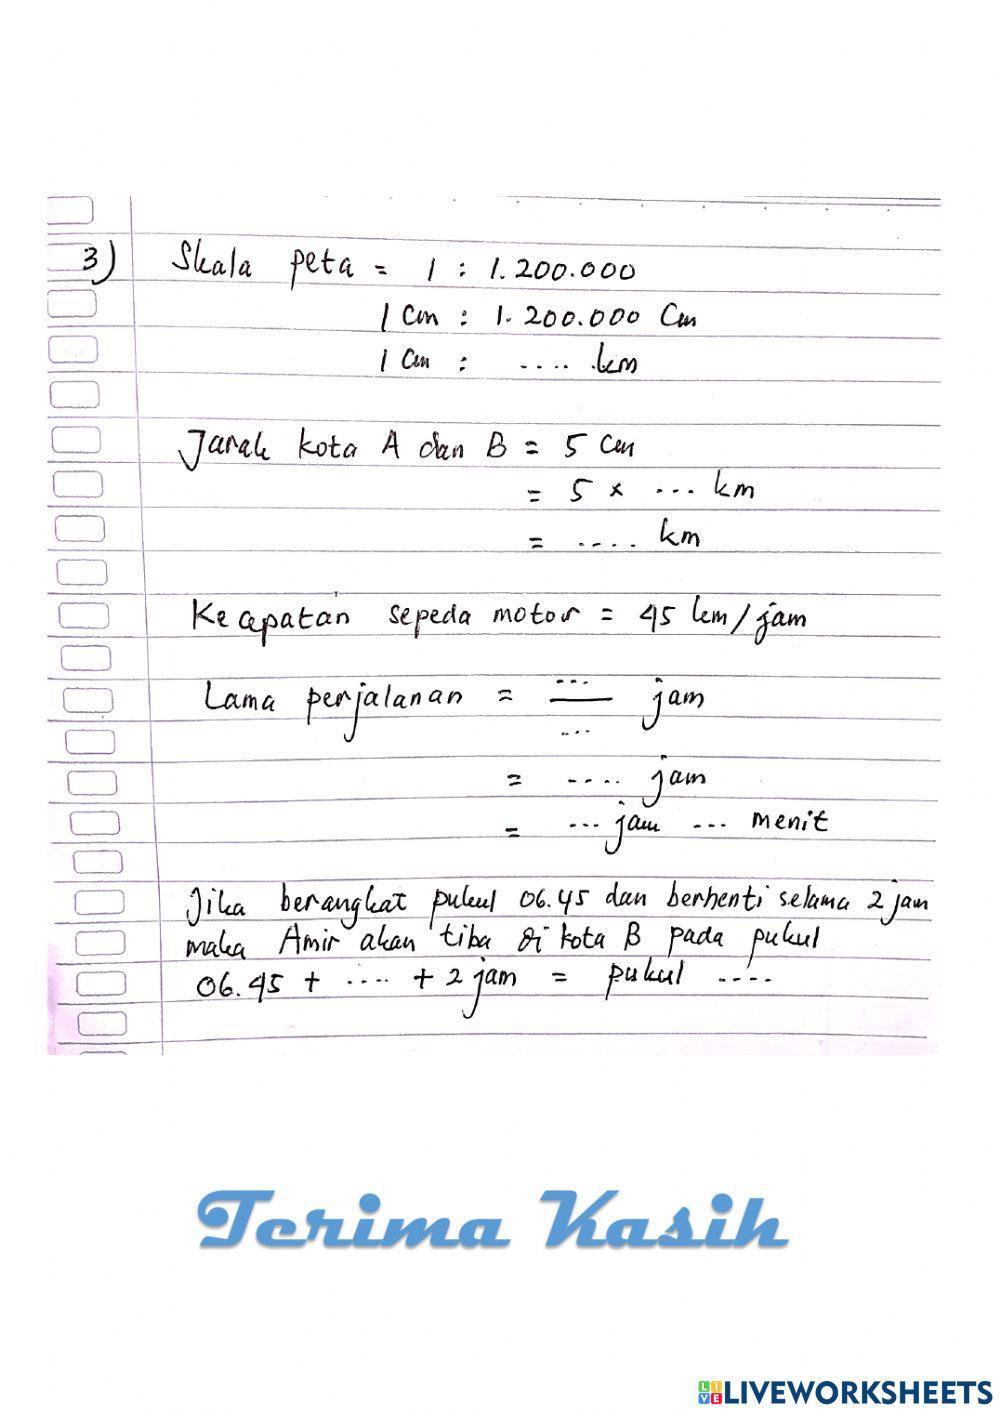 3) Skala peta = 1 : 1.200.000
1 Cm : 1.200.000 Cm
1 Cm : .... km
Jarak kota A dan B = 5 Cm
= 5 x ... km
= .... km
Kecepatan sepeda motor = 45 km/jam
Lama perjalanan = .../... jam
= .... jam
= ... jam ... menit
Jika berangkat pukul 06.45 dan berhenti selama 2 jam
maka Amir akan tiba di kota B pada pukul
06.45 + .... + 2 jam = pukul ....
Terima Kasih
LIVE LIVEWORKSHEETS